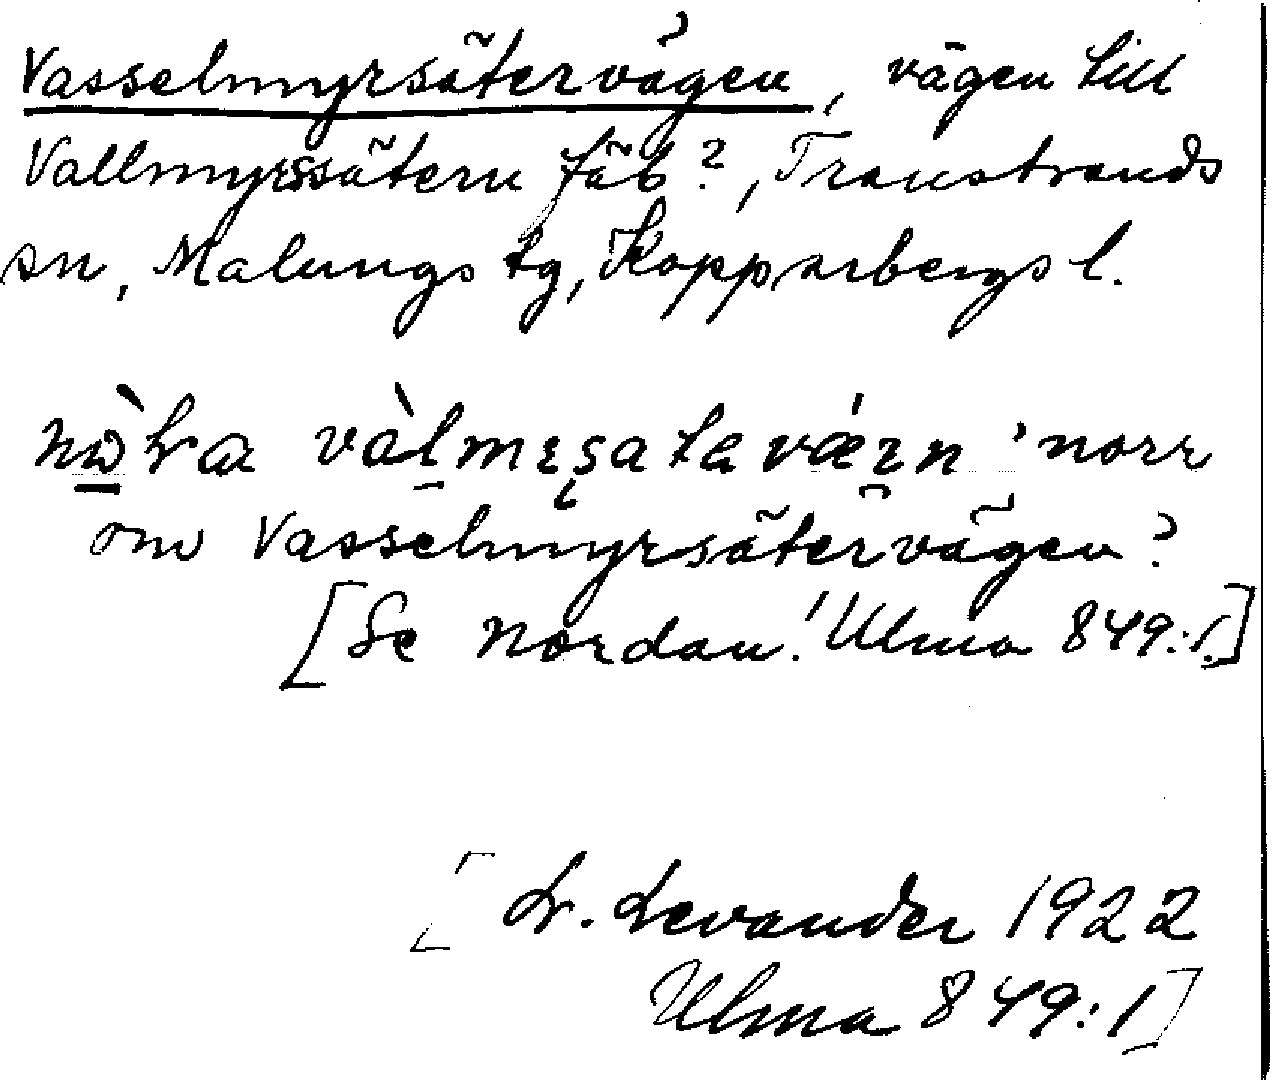 Vasselmyrsätervägen, vägen till
Vallmyrssätern fäb?, Transtrands
sn, Malungs tg, Kopparbergs l.
'norr
om Vasselmyrsätervägen?
[Se nordan! Ulma 849:1.]
[L. Levander 1922
Ulma 849:1]